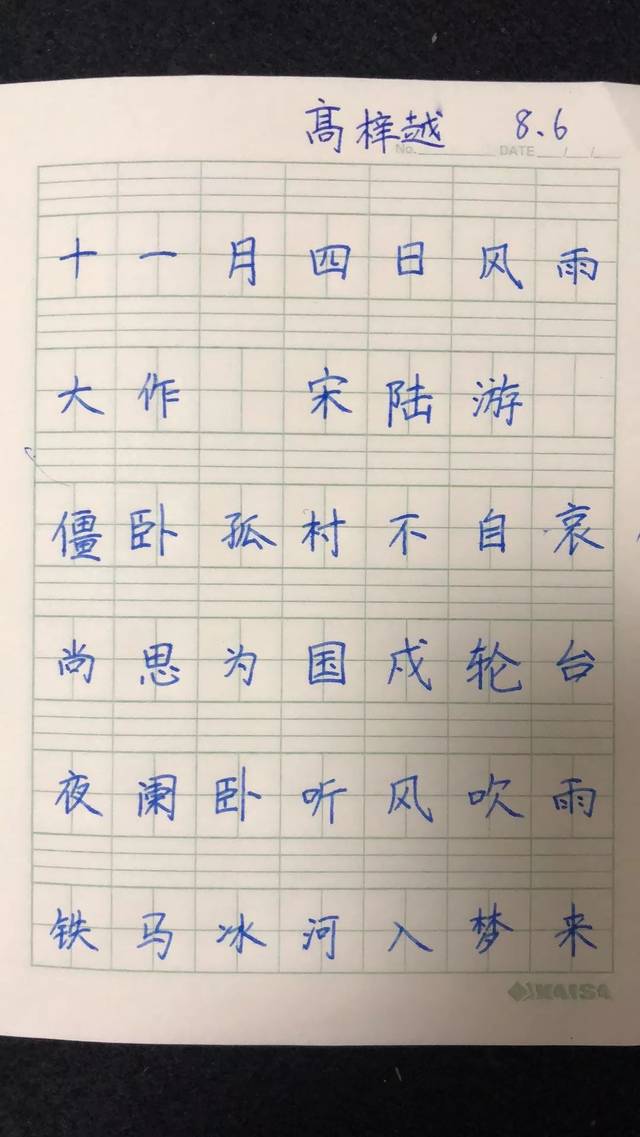 高梓越 8.6
No. DATE / /
十一月四日风雨
大作 宋陆游
僵卧孤村不自哀
尚思为国戍轮台
夜阑卧听风吹雨
铁马冰河入梦来
KAISA